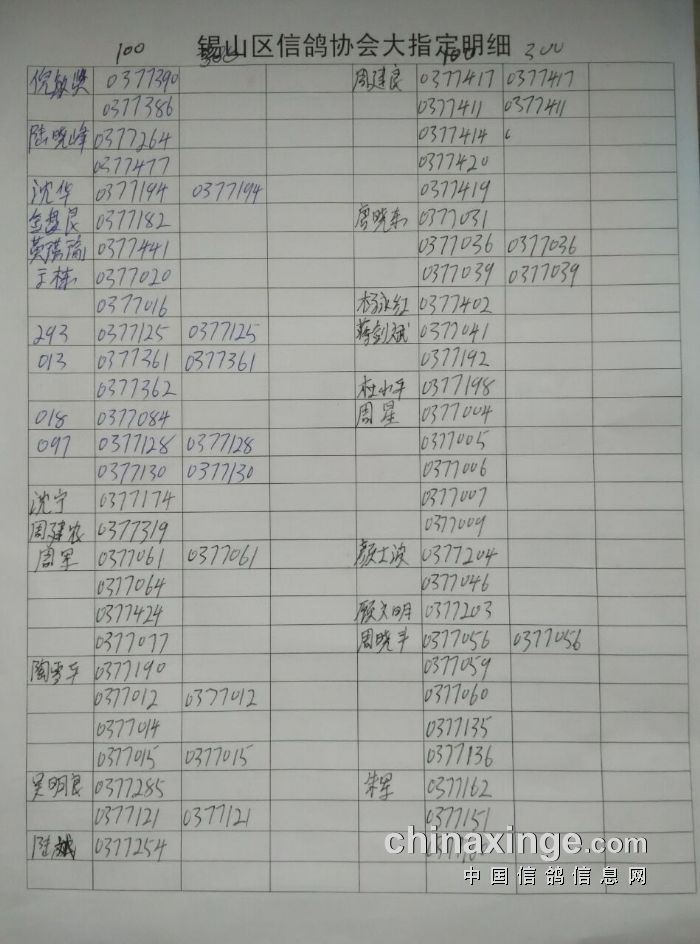 锡山区信鸽协会大指定明细
100 300 100 300
倪敏 0377390 周建良 0377417 0377417
0377386 0377411 0377411
陆晓峰 0377264 0377414
0377477 0377420
沈华 0377194 0377194 0377419
金盘良 0377182 唐晓东 0377031
0377441 0377036 0377036
王栋 0377020 0377039 0377039
0377016 杨永红 0377402
293 0377125 0377125 蒋剑斌 0377041
013 0377361 0377361 0377192
0377362 杜小平 0377198
018 0377084 周星 0377004
097 0377128 0377128 0377005
0377130 0377130 0377006
沈宁 0377174 0377007
周建农 0377319 0377009
周军 0377061 0377061 颜士波 0377204
0377064 0377046
0377424 顾文明 0377203
0377077 周晓丰 0377056 0377056
陶雪平 0377190 0377059
0377012 0377012 0377060
0377014 0377135
0377015 0377015 0377136
吴明良 0377285 朱军 0377162
0377121 0377121 0377151
陆斌 0377254
chinaxinge.com
中国信鸽信息网